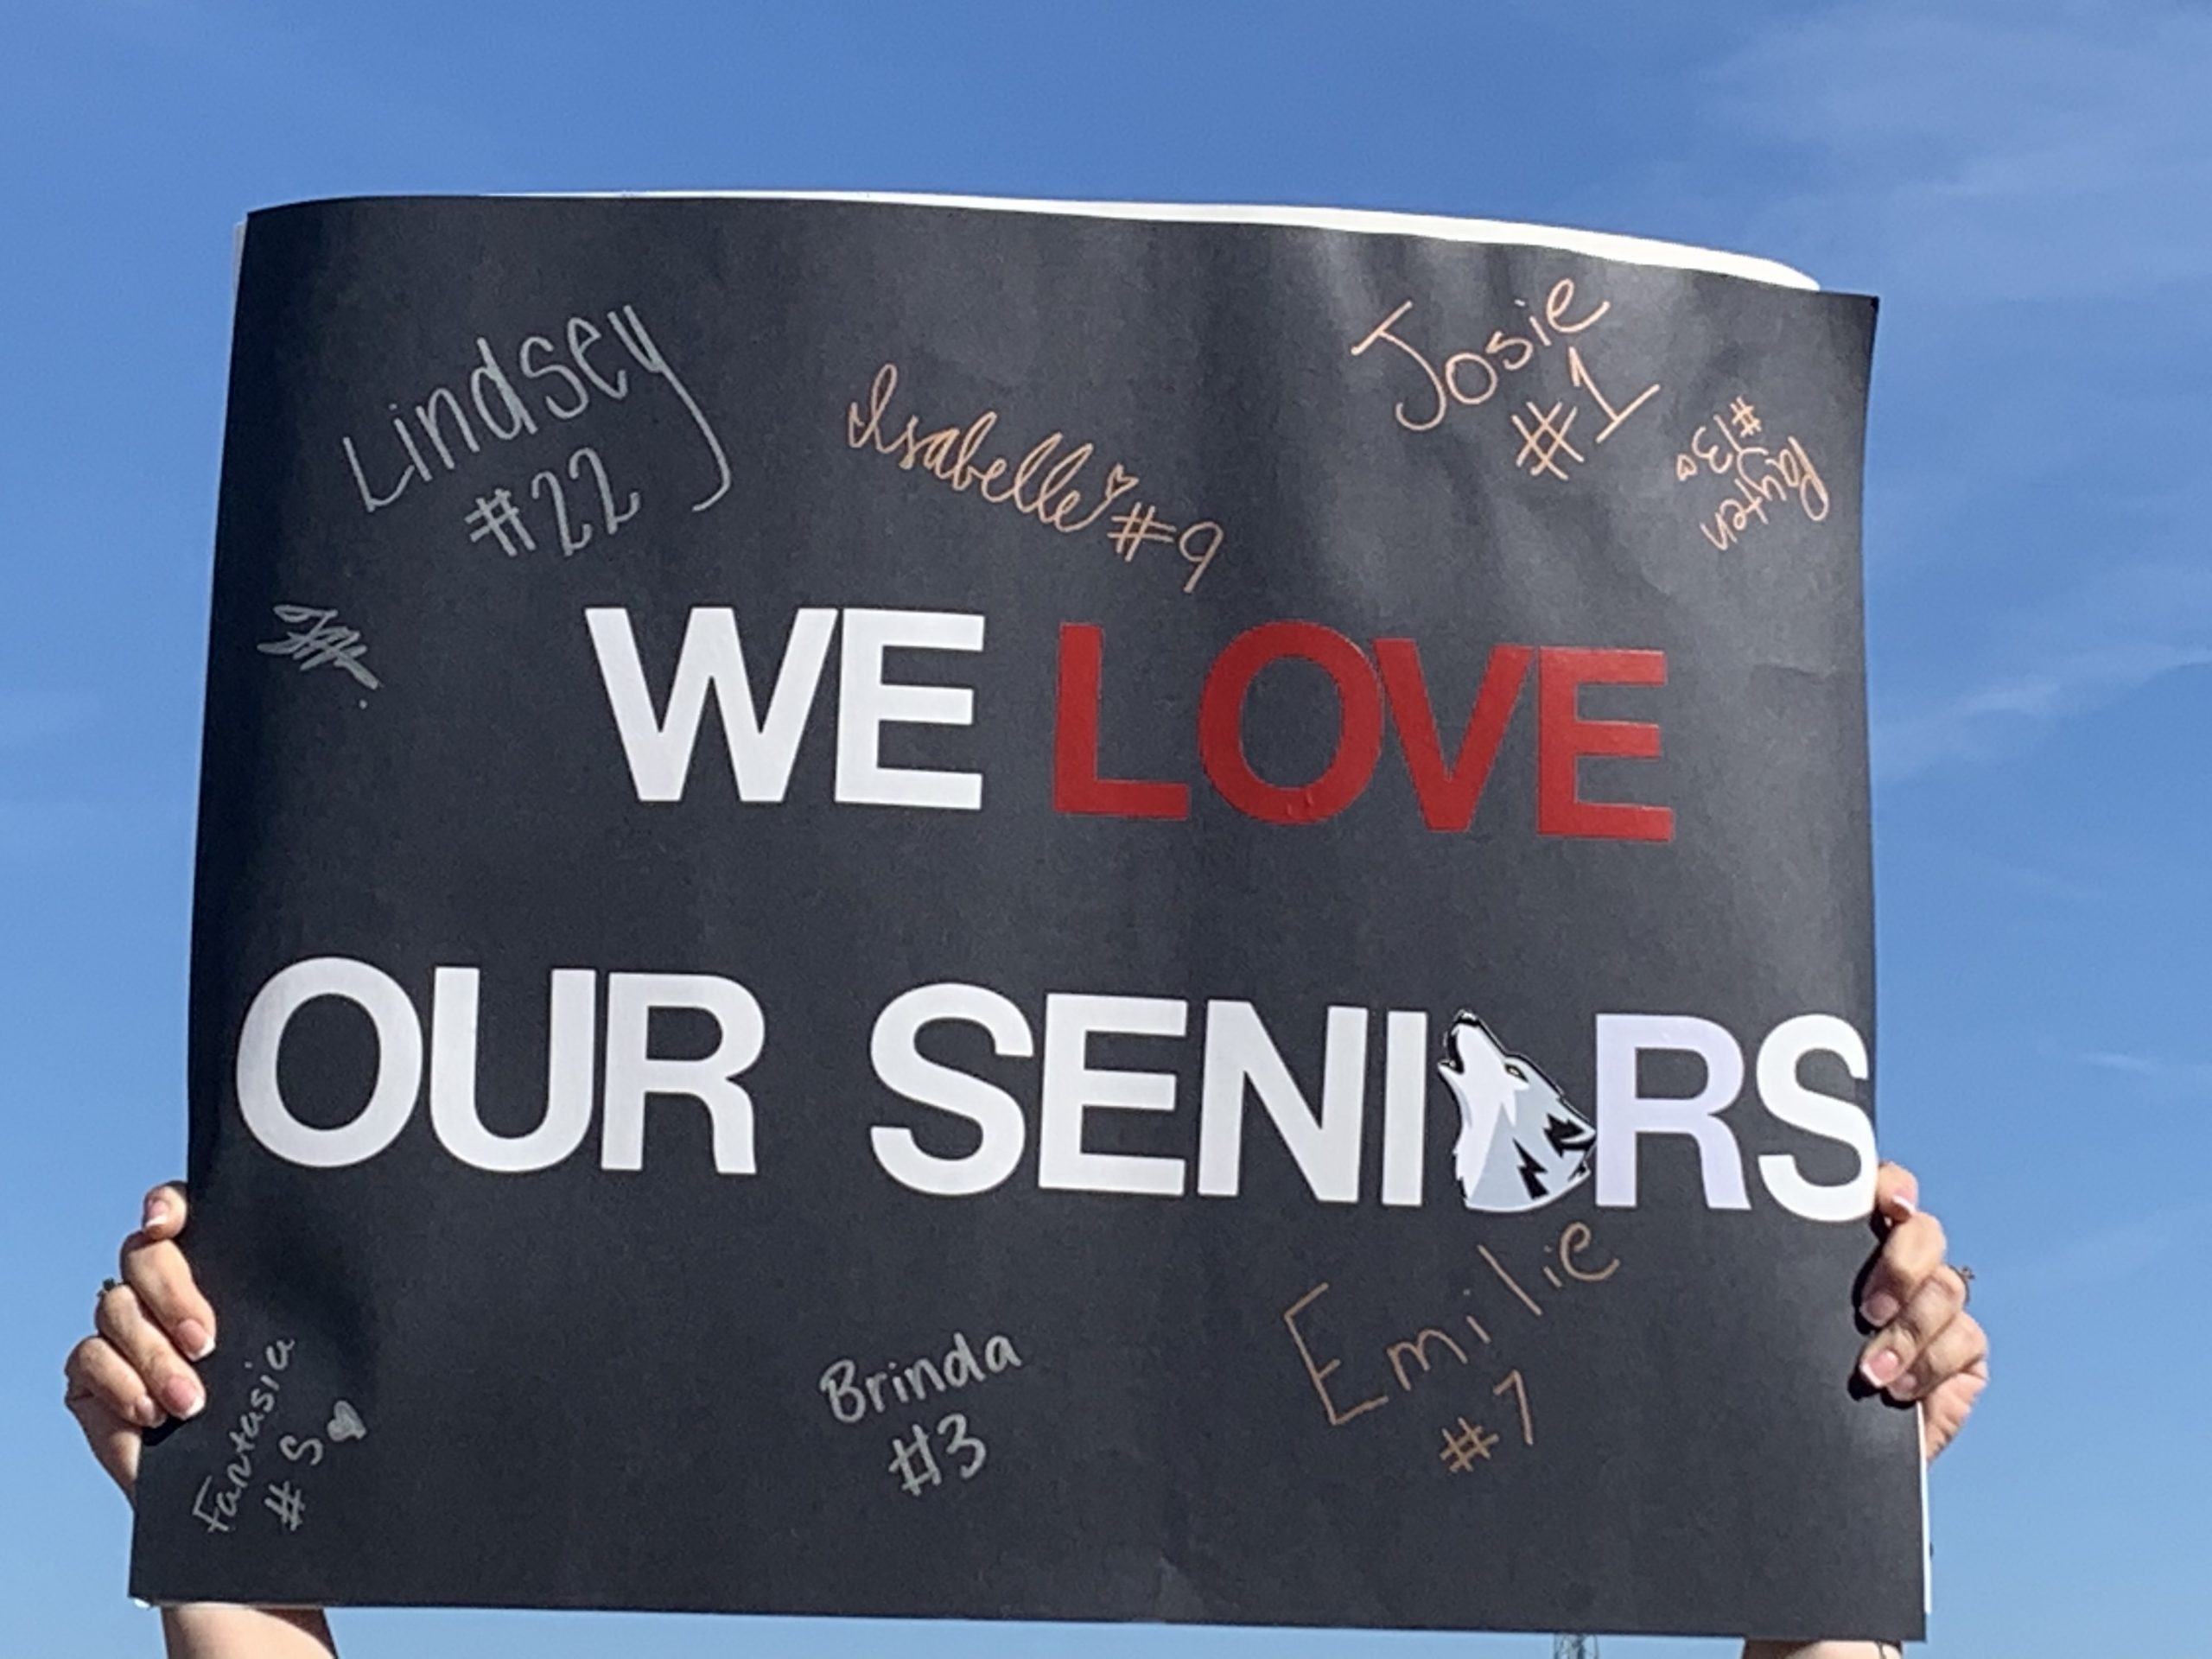 Lindsey
#22
Isabelle #9
Josie
#1
Payten
#13
WE LOVE
OUR SENI RS
Fantasia
# 5
Brinda
#3
Emilie
#7